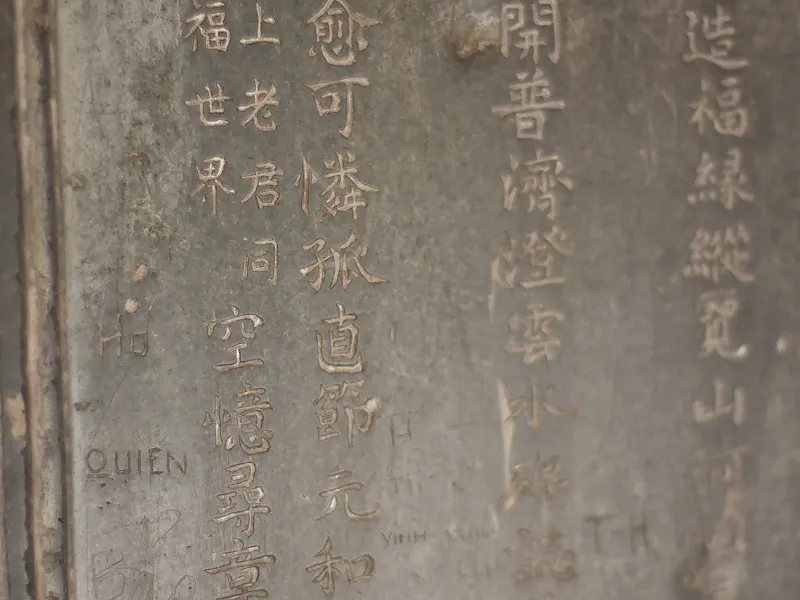 造福緣縱覽山河
開普濟澄雲水
愈可憐孤直節元和
上老君同
福世界
空憶尋章
QUIEN
T H